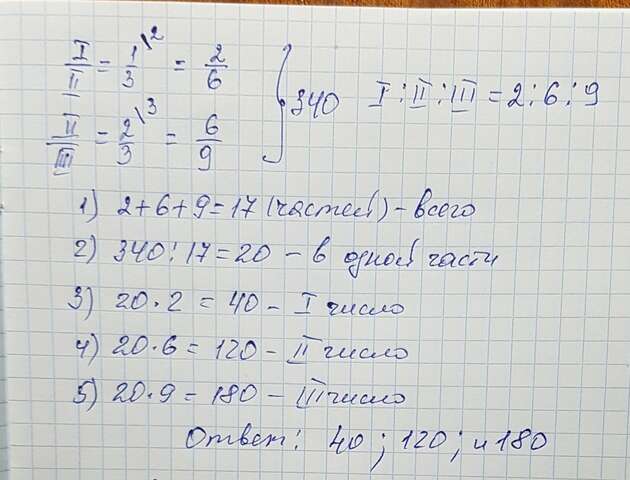 I/II = 1/3 \2 = 2/6
II/III = 2/3 \3 = 6/9
} 340 I : II : III = 2 : 6 : 9
1) 2+6+9=17 (частей) - всего
2) 340 : 17 = 20 - в одной части
3) 20 · 2 = 40 - I число
4) 20 · 6 = 120 - II число
5) 20 · 9 = 180 - III число
Ответ: 40 ; 120 ; и 180